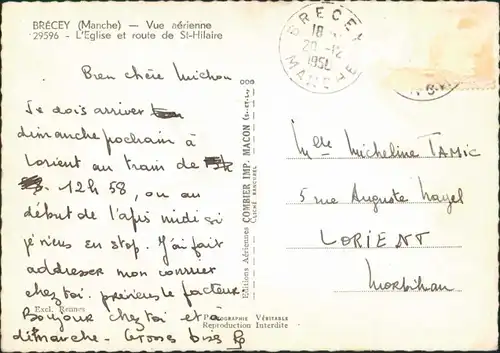 BRÉCEY (Manche) — Vue aérienne
29596 - L'Eglise et route de St-Hilaire
BRECEY
18
20 -12
1952
MANCHE
Bien chère Michou
Je dois arriver
dimanche prochain à
Lorient au train de
12h 58, ou au
début de l'après midi si
je viens en stop. J'ai fait
addresser mon courrier
chez toi. préviens le facteur.
Bonjour chez toi et à
dimanche - Grosses bises
Excl. Rennes
Editions Aériennes COMBIER IMP. MACON (S.-ET-L.)
CLICHÉ RANCUREL
PHOTOGRAPHIE VÉRITABLE
Reproduction Interdite
Melle Micheline TAMIC
5 rue Auguste Nayel
LORIENT
Morbihan